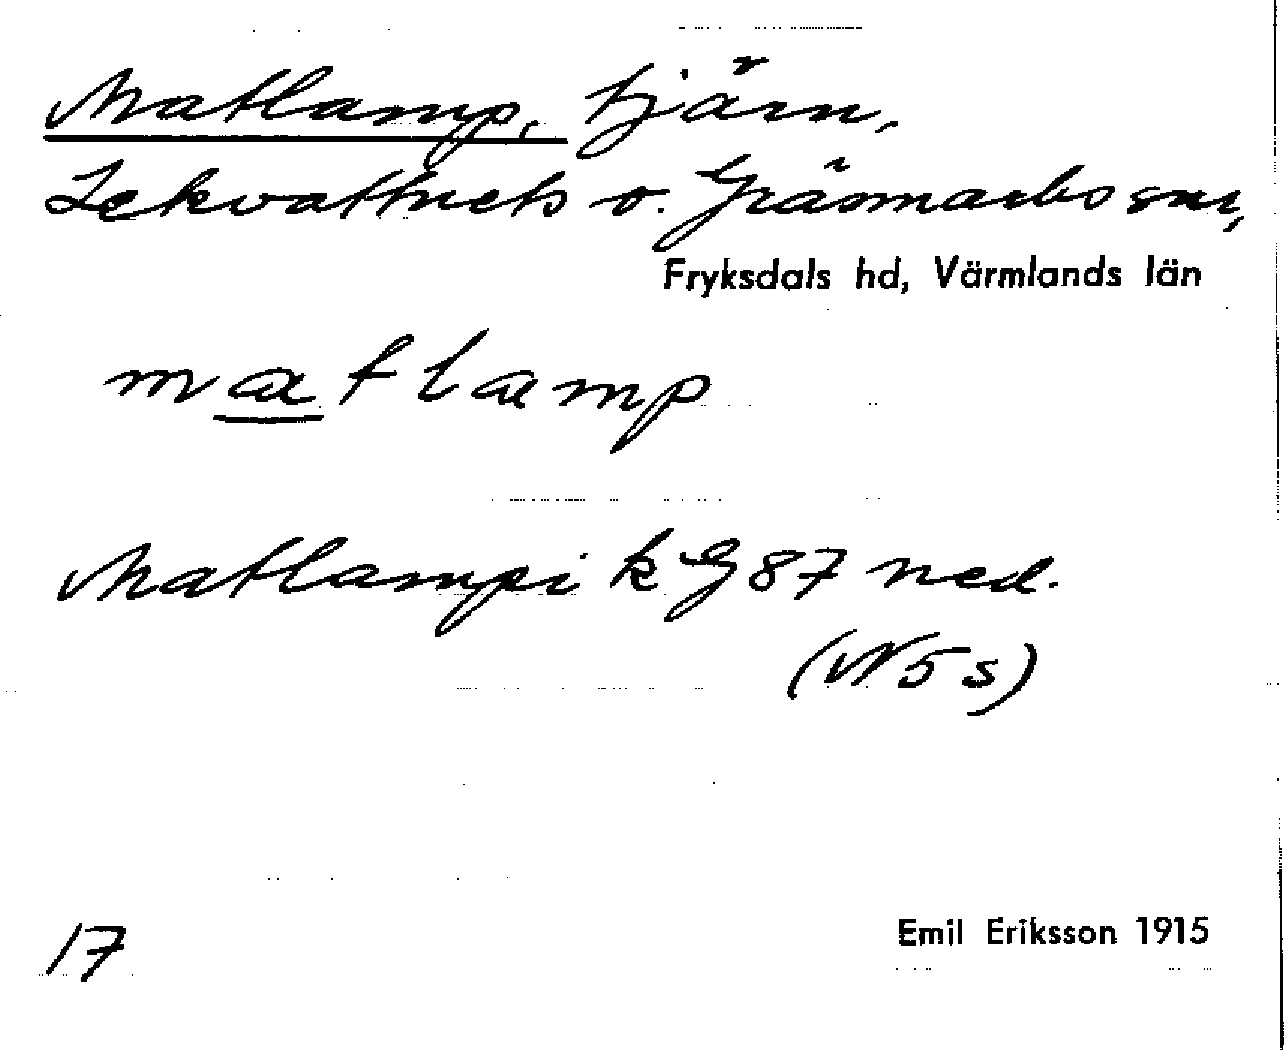 Matlamp, tjärn,
Lekvattnets o. Gräsmarks snr,
Fryksdals hd, Värmlands län
matlamp
Matlampi k G 87 ned.
(N 5 s)
17
Emil Eriksson 1915